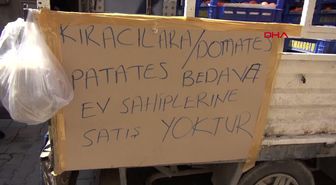 KİRACILARA/DOMATES
PATATES BEDAVA
EV SAHİPLERİNE
SATIŞ YOKTUR
DHA